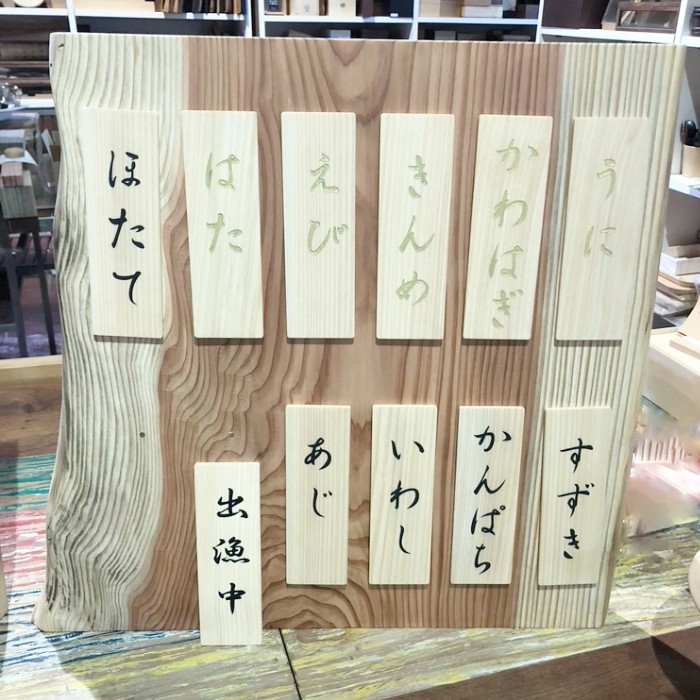 うに
かわはぎ
きんめ
えび
はた
ほたて
すずき
かんぱち
いわし
あじ
出漁中